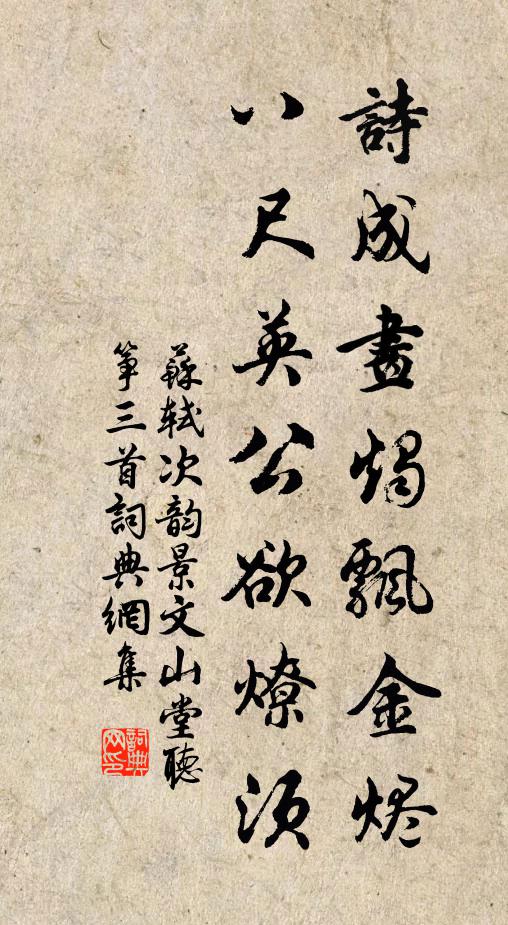 詩成畫燭飄金燼
八尺英公欲燎須
蘇軾次韵景文山堂聽
箏三首詞典網集
詞典
网印